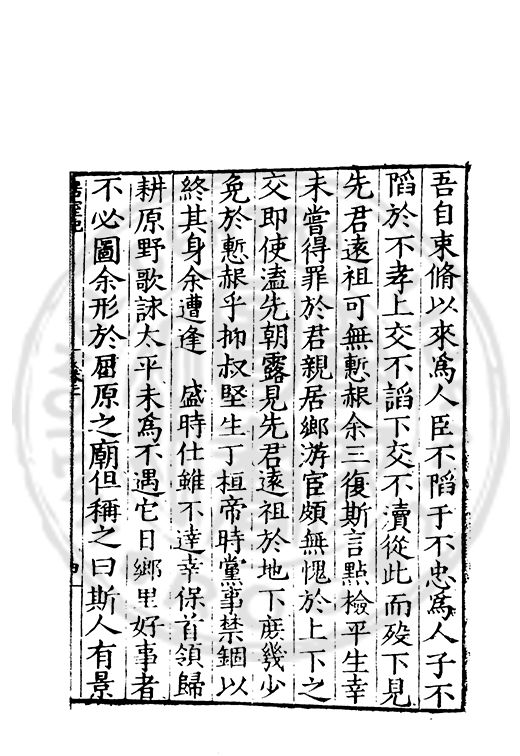 吾自束脩以來爲人臣不陷于不忠爲人子不
陷於不孝上交不謟下交不瀆從此而歿下見
先君遠祖可無慙赧余三復斯言點檢平生幸
未嘗得罪於君親居鄉游宦頗無愧於上下之
交即使溘先朝露見先君遠祖於地下庶幾少
免於慙赧乎抑叔堅生丁桓帝時黨事禁錮以
終其身余遭逢 盛時仕雖不達幸保首領歸
耕原野歌詠太平未爲不遇它日鄉里好事者
不必圖余形於屈原之廟但稱之曰斯人有景